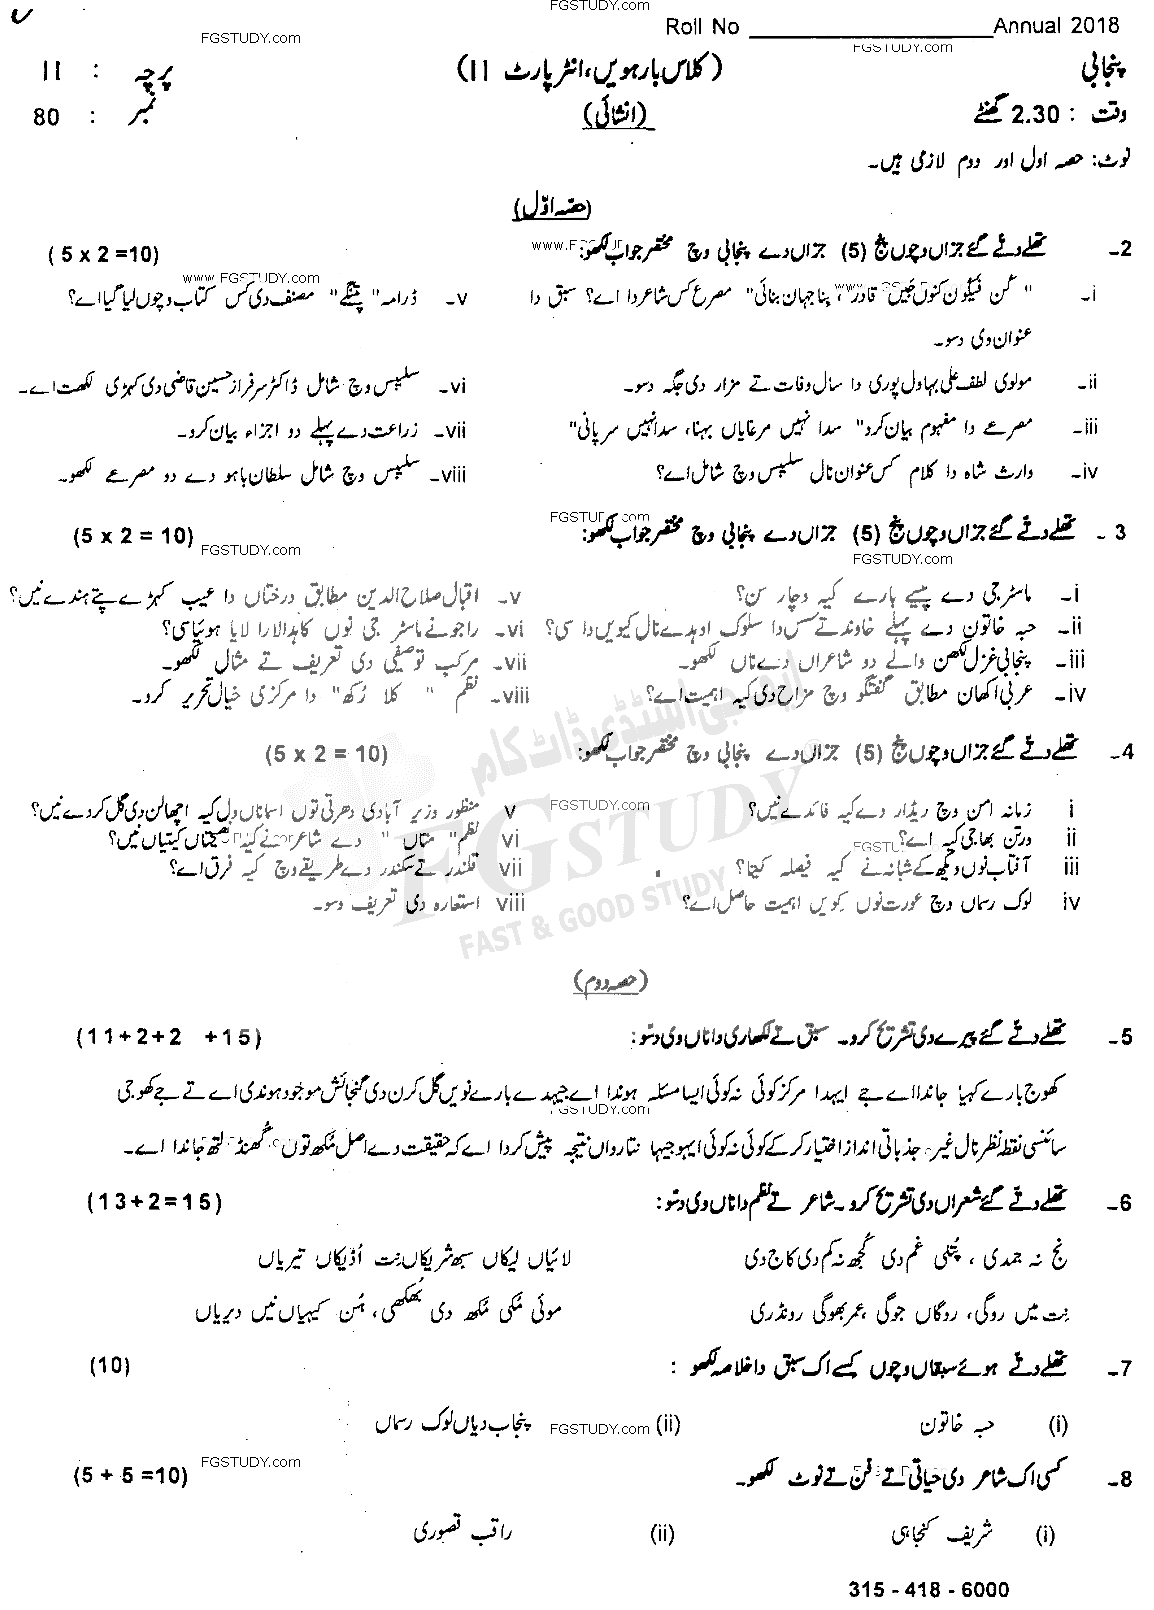 Roll No ____________________ Annual 2018
پنجابی (کلاس بارھویں، انٹر پارٹ II) پرچہ : II
وقت : 2.30 گھنٹے (انشائی) نمبر : 80
نوٹ: حصہ اول اور دوم لازمی ہیں۔
(حصہ اوّل)
2۔ تھلے دتے گئے جزاں وچوں پنج (5) جزاں دے پنجابی وچ مختصر جواب لکھو: (5 x 2 =10)
i۔ "کن فیکون کنوں جیں قادر، بنا جہان بنائی" مصرع کس شاعر دا اے؟ سبق دا عنوان وی دسو۔
ii۔ مولوی لطف علی بہاول پوری دا سال وفات تے مزار دی جگہ دسو۔
iii۔ مصرعے دا مفہوم بیان کرو" سدا نہیں مرغایاں بہنا، سدا نہیں سر پانی"
iv۔ وارث شاہ دا کلام کس عنوان نال سلیبس وچ شامل اے؟
v۔ ڈرامہ" پتنگے" مصنف دی کس کتاب وچوں لیا گیا اے؟
vi۔ سلیبس وچ شامل ڈاکٹر سرفراز حسین قاضی دی کہڑی لکھت اے۔
vii۔ زراعت دے پہلے دو اجزاء بیان کرو۔
viii۔ سلیبس وچ شامل سلطان باہو دے دو مصرعے لکھو۔
3 ۔ تھلے دتے گئے جزاں وچوں پنج (5) جزاں دے پنجابی وچ مختصر جواب لکھو: (5 x 2 = 10)
i۔ ماسٹر جی دے پیسے بارے کیہ وچار سن؟
ii۔ حبہ خاتون دے پہلے خاوند تے سس دا سلوک اوہدے نال کیویں دا سی؟
iii۔ پنجابی غزل لکھن والے دو شاعراں دے ناں لکھو۔
iv۔ عربی اکھان مطابق گفتگو وچ مزاح دی کیہ اہمیت اے؟
v۔ اقبال صلاح الدین مطابق درختاں دا عیب کہڑے پتے ہندے نیں؟
vi۔ راجو نے ماسٹر جی نوں کاہدا لارا لایا ہویا سی؟
vii۔ مرکب توصیفی دی تعریف تے مثال لکھو۔
viii۔ نظم " کلا رُکھ" دا مرکزی خیال تحریر کرو۔
4۔ تھلے دتے گئے جزاں وچوں پنج (5) جزاں دے پنجابی وچ مختصر جواب لکھو: (5 x 2 = 10)
i زمانہ امن وچ ریڈار دے کیہ فائدے نیں؟
ii ورتن بھاجی کیہ اے؟
iii آفتاب نوں ویکھ کے شبانہ نے کیہ فیصلہ کیتا؟
iv لوک رسماں وچ عورت نوں کیویں اہمیت حاصل اے؟
v منظور وزیر آبادی دھرتی توں اسماناں ول کیہ اچھالن دی گل کردے نیں؟
vi نظم" متاں " دے شاعر نے کیہ نصیحتاں کیتیاں نیں؟
vii قلندر تے سکندر دے طریقے وچ کیہ فرق اے؟
viii استعارہ دی تعریف دسو۔
(حصہ دوم)
5۔ تھلے دتے گئے پیرے دی تشریح کرو۔ سبق تے لکھاری دا ناں وی دسو: (11+2+2 +15)
کھوج بارے کہیا جاندا اے جے ایہدا مرکز کوئی نہ کوئی ایسا مسئلہ ہوندا اے جیہدے بارے نویں گل کرن دی گنجائش موجود ہوندی اے تے جے کھوجی
سائنسی نقطہ نظر نال غیر جذباتی انداز اختیار کر کے کوئی نہ کوئی ایہو جیہا نتارواں نتیجہ پیش کردا اے کہ حقیقت دے اصل مُکھ توں گھنڈ لتھ جاندا اے۔
6۔ تھلے دتے گئے شعراں دی تشریح کرو۔ شاعر تے نظم دا ناں وی دسو: (13+2=15)
نج نہ جمدی ، پُتلی غم دی کُجھ نہ کم دی کاج دی لائیاں لیکاں سبھ شریکاں نِت اُڈیکاں تیریاں
نِت میں روگی، روگاں جوگی، عمر بھوگی روندڑی موئی مُکی مُکھ دی بُھکھی، ہُن کیہیاں نیں دیریاں
7۔ تھلے دتے ہوئے سبقاں وچوں کسے اک سبق دا خلاصہ لکھو : (10)
(i) حبہ خاتون (ii) پنجاب دیاں لوک رسماں
8۔ کسی اک شاعر دی حیاتی تے فن تے نوٹ لکھو۔ (5 + 5 =10)
(i) شریف کنجاہی (ii) راقب قصوری
315 - 418 - 6000
FGSTUDY.com
www.FGSTUDY.com
ایف جی اسٹڈی ڈاٹ کام
FGSTUDY
FAST & GOOD STUDY